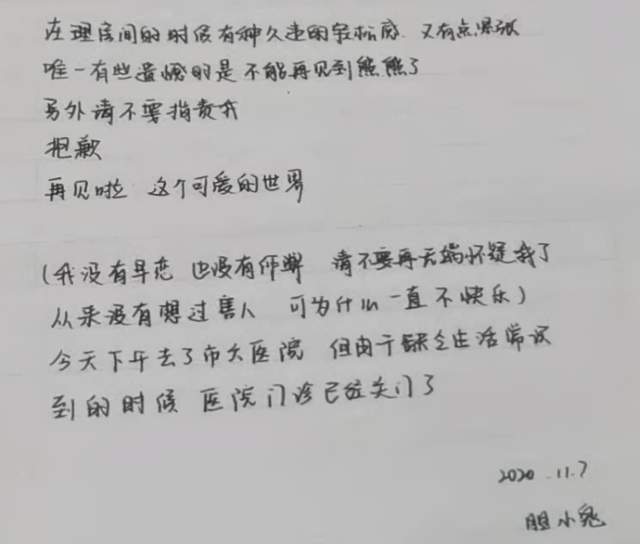 在理房间的时候有种久违的轻松感 又有点紧张
唯一有些遗憾的是 不能再见到熊熊了
另外请不要指责我
抱歉
再见啦 这个可爱的世界
(我没有早恋 也没有作弊 请不要再无端怀疑我了
从来没有想过害人 可为什么一直不快乐)
今天下午去了市大医院 但由于缺乏生活常识
到的时候 医院门诊已经关门了
2020.11.7
胆小鬼